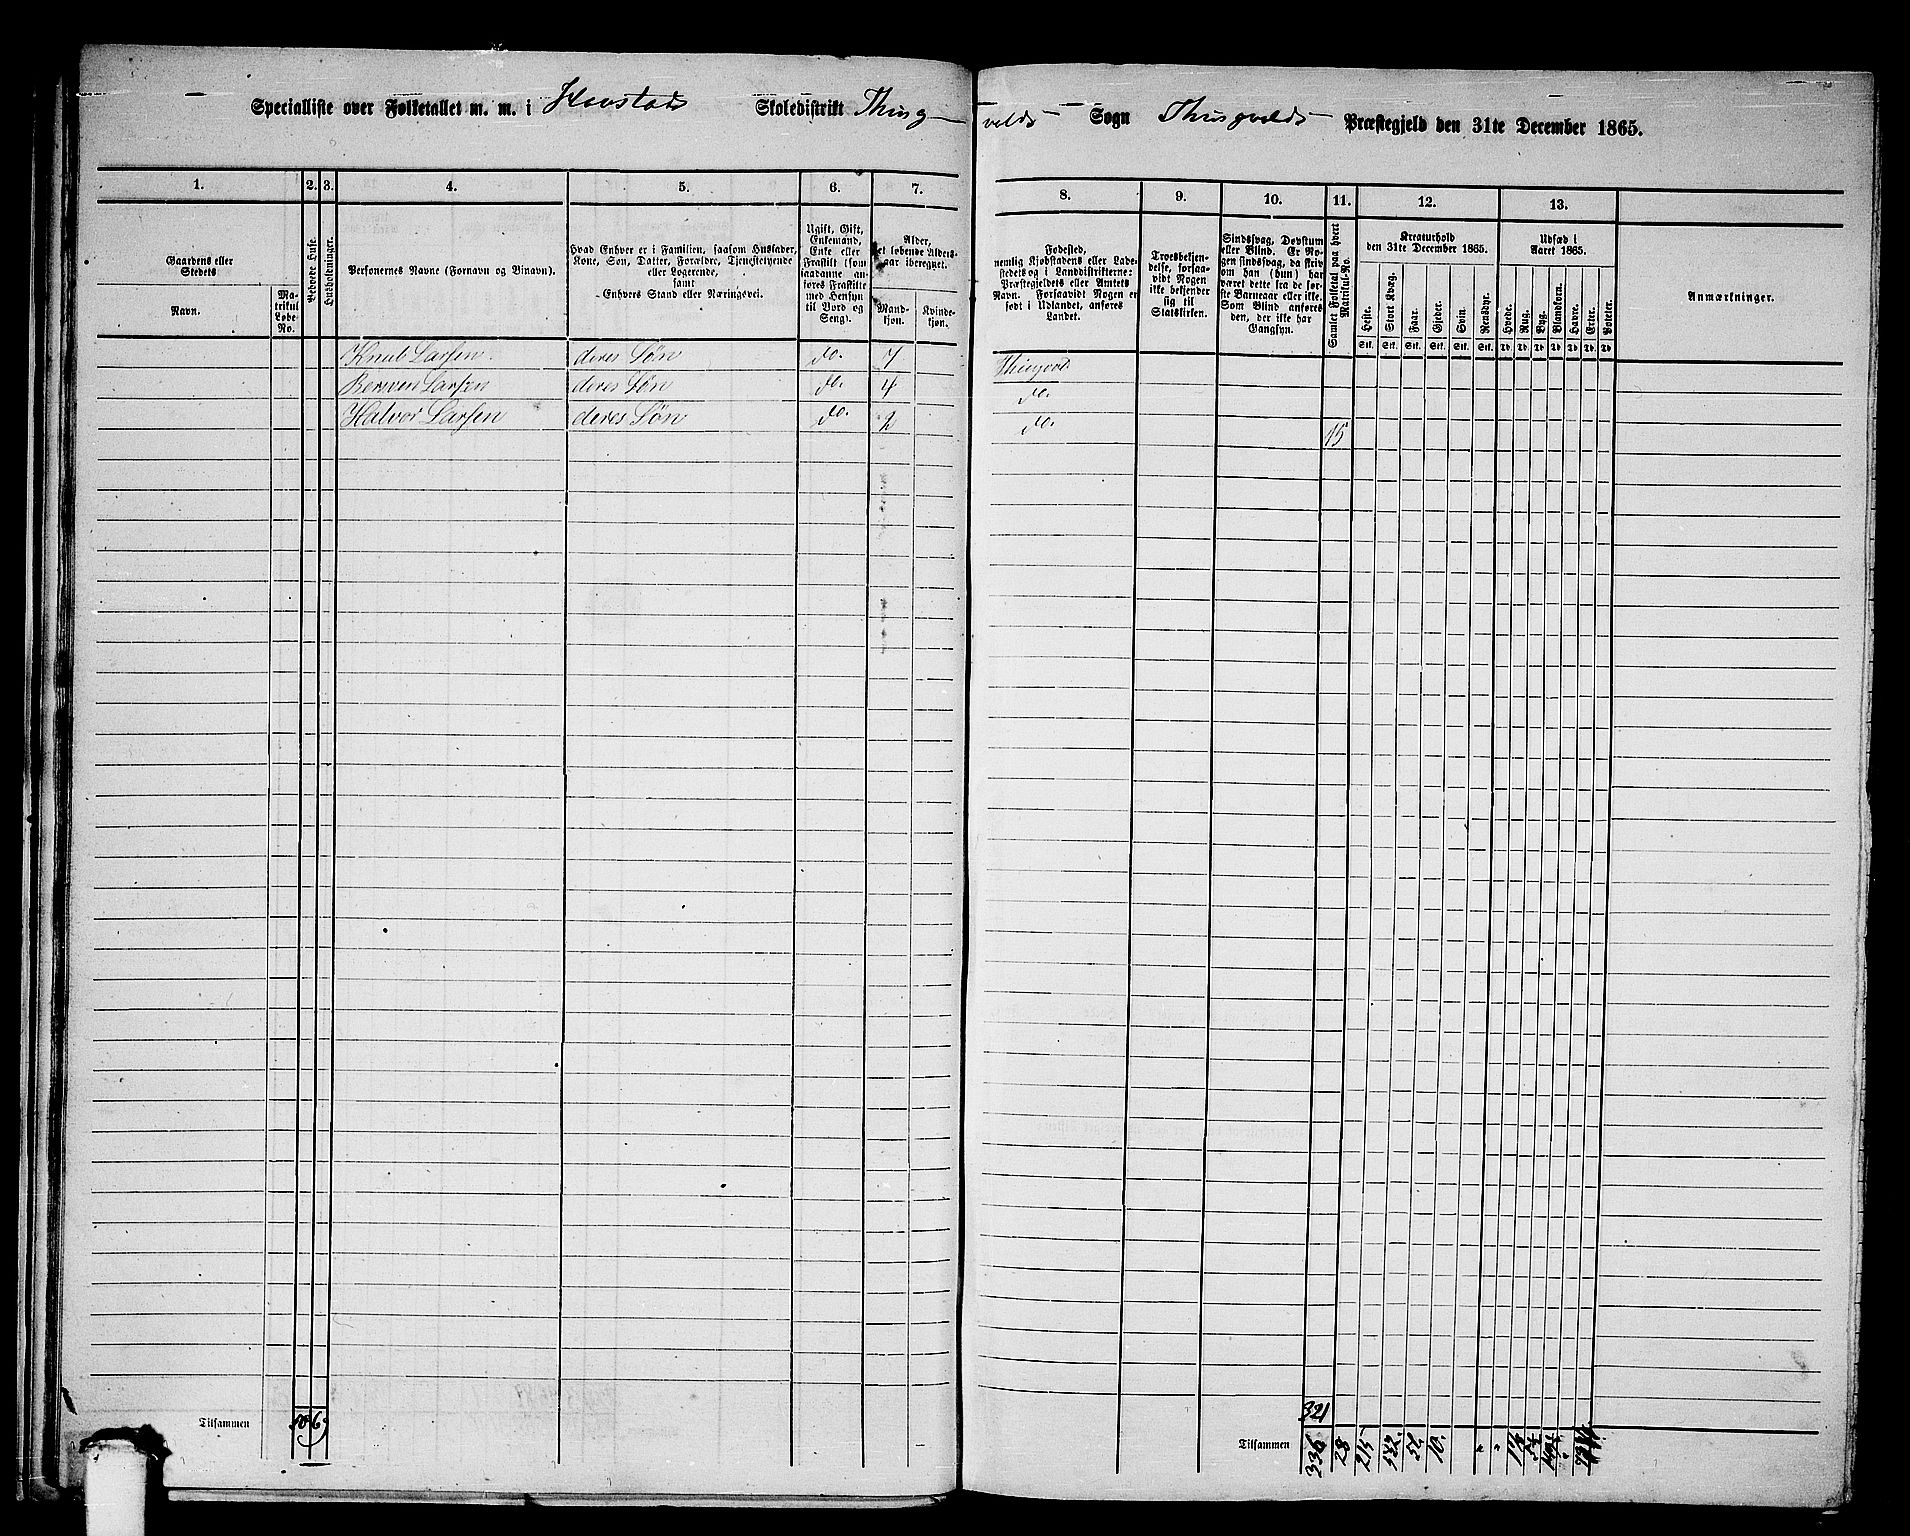 Specialliste over Folketallet m. m. i Havstads Skoledistrikt Thingvolds Sogn Thingvolds Præstegjeld den 31te December 1865.
1. 2. 3. 4. 5. 6. 7. 8. 9. 10. 11. 12. 13.
Gaardens eller Stedets
Navn.
Matrikul Løbe-No.
Beboede Huse.
Husholdninger.
Personernes Navne (Fornavn og Binavn).
Hvad Enhver er i Familien, saasom Husfader, Kone, Søn, Datter, Forældre, Tjenestetyende eller Logerende, samt Enhvers Stand eller Næringsvei.
Ugift, Gift, Enkemand, Enke eller Fraskilt (som saadanne anføres Fraskilte med Hensyn til Bord og Seng).
Alder, det løbende Aldersaar iberegnet.
Mandkjøn.
Kvindekjøn.
Fødested, nemlig Kjøbstadens eller Ladestedets og i Landdistrikterne: Præstegjeldets eller Amtets Navn. Forsaavidt Nogen er født i Udlandet, anføres Landet.
Troesbekjendelse, forsaavidt Nogen ikke bekjender sig til Statskirken.
Sindssvag, Døvstum eller Blind. Er Nogen sindssvag, da skrives om han (hun) har været dette fra de første Barneaar eller ikke. Som Blind anføres den, der ikke har Gangsyn.
Samlet Folketal paa hvert Matrikul-No.
Kreaturhold den 31te December 1865.
Heste. Stort Kvæg. Faar. Gjeder. Svin. Rensdyr.
Stk. Stk. Stk. Stk. Stk. Stk.
Udsæd i Aaret 1865.
Hvede. Rug. Byg. Blandkorn. Havre. Erter. Poteter.
Td. Td. Td. Td. Td. Td. Td.
Anmærkninger.
Knut Larsen. deres Søn do. 7 Thingvold
Berwen Larsen deres Søn do. 4 do.
Halvor Larsen deres Søn do. 2 do. 15
321
Tilsammen
Tilsammen 336 28 215 10. " "